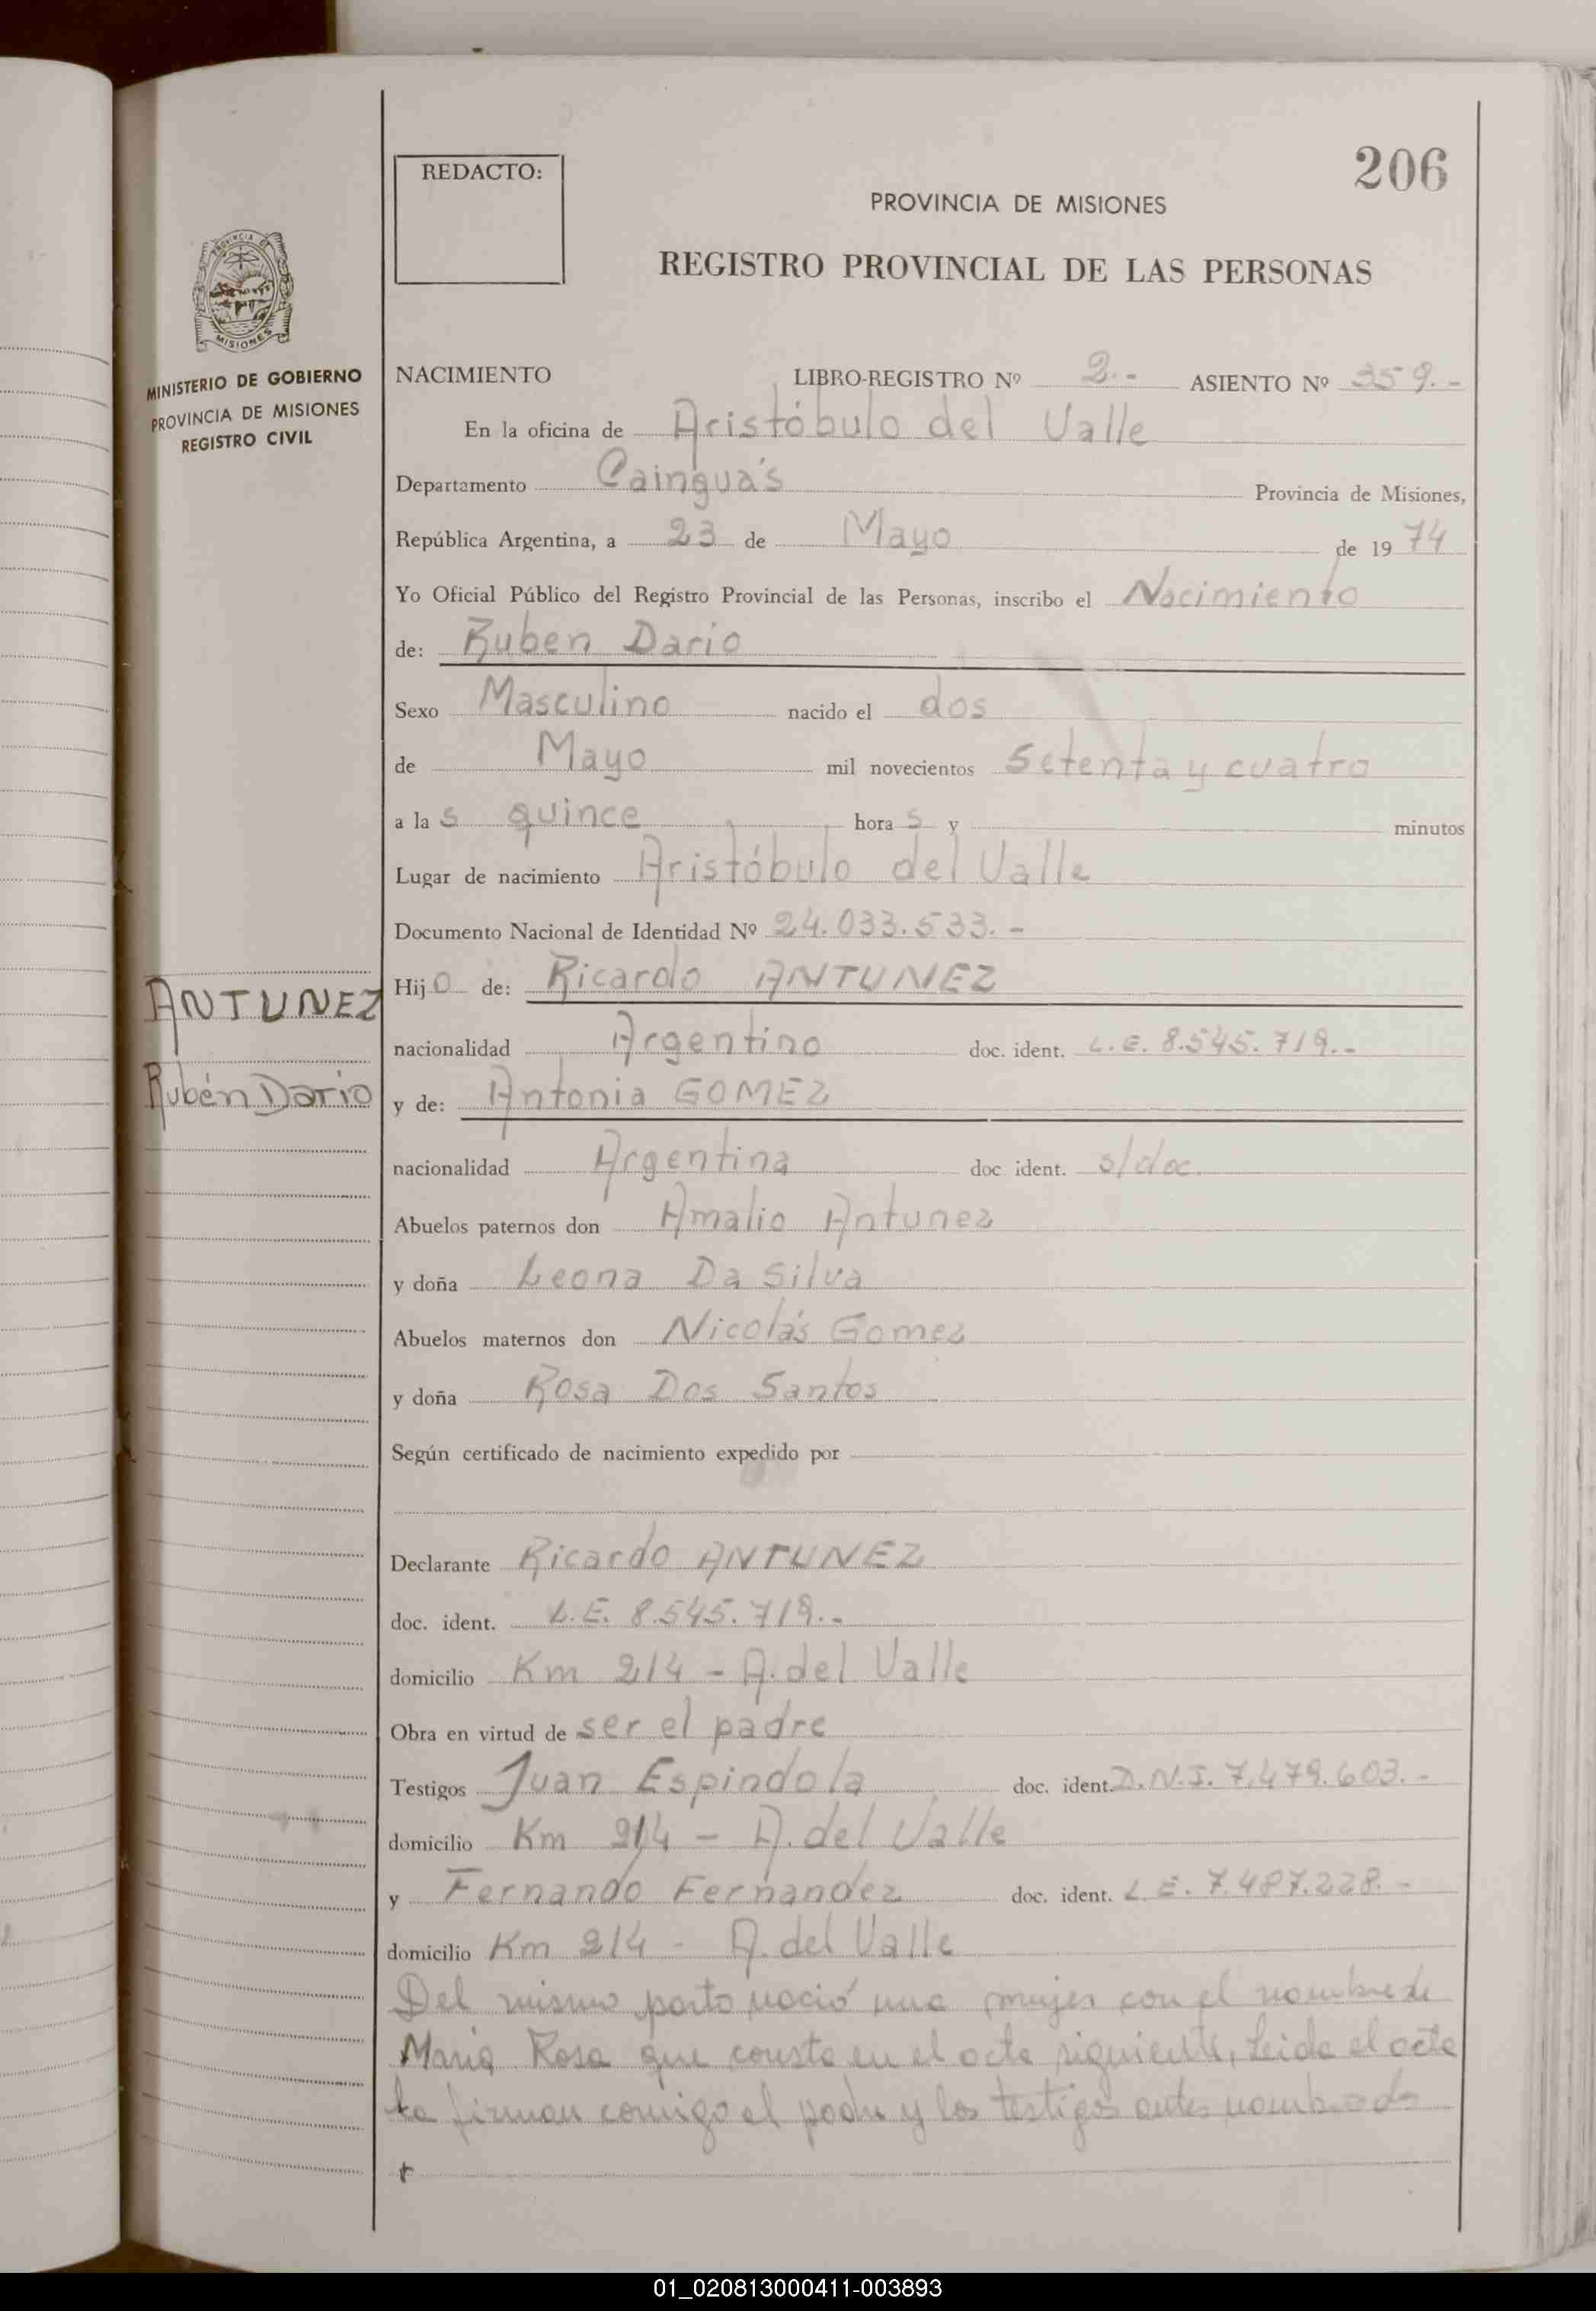 206
REDACTO:
PROVINCIA DE MISIONES
REGISTRO PROVINCIAL DE LAS PERSONAS
PROVINCIA DE
MISIONES
MINISTERIO DE GOBIERNO
PROVINCIA DE MISIONES
REGISTRO CIVIL
NACIMIENTO LIBRO-REGISTRO Nº 2.- ASIENTO Nº 359.-
En la oficina de Aristóbulo del Valle
Departamento Cainguás Provincia de Misiones,
República Argentina, a 23 de Mayo de 1974
Yo Oficial Público del Registro Provincial de las Personas, inscribo el Nacimiento
de: Ruben Dario
Sexo Masculino nacido el dos
de Mayo mil novecientos Setenta y cuatro
a las quince horas y minutos
Lugar de nacimiento Aristóbulo del Valle
Documento Nacional de Identidad Nº 24.033.533.-
ANTUNEZ
Hijo de: Ricardo ANTUNEZ
nacionalidad Argentino doc. ident. L.E. 8.545.719.-
Rubén Dario
y de: Antonia GOMEZ
nacionalidad Argentina doc ident. s/doc.
Abuelos paternos don Amalio Antunez
y doña Leona Da Silva
Abuelos maternos don Nicolás Gomez
y doña Rosa Dos Santos
Según certificado de nacimiento expedido por
Declarante Ricardo ANTUNEZ
doc. ident. L.E. 8.545.719.-
domicilio Km 214 - A. del Valle
Obra en virtud de ser el padre
Testigos Juan Espindola doc. ident. D.N.I. 7.479.603.-
domicilio Km 214 - A. del Valle
y Fernando Fernandez doc. ident. L.E. 7.487.228.-
domicilio Km 214 - A. del Valle
Del mismo parto nació una mujer con el nombre de
Maria Rosa que consta en el acta siguiente, Leida el acta
la firman conmigo el padre y los testigos antes nombrados
01_020813000411-003893